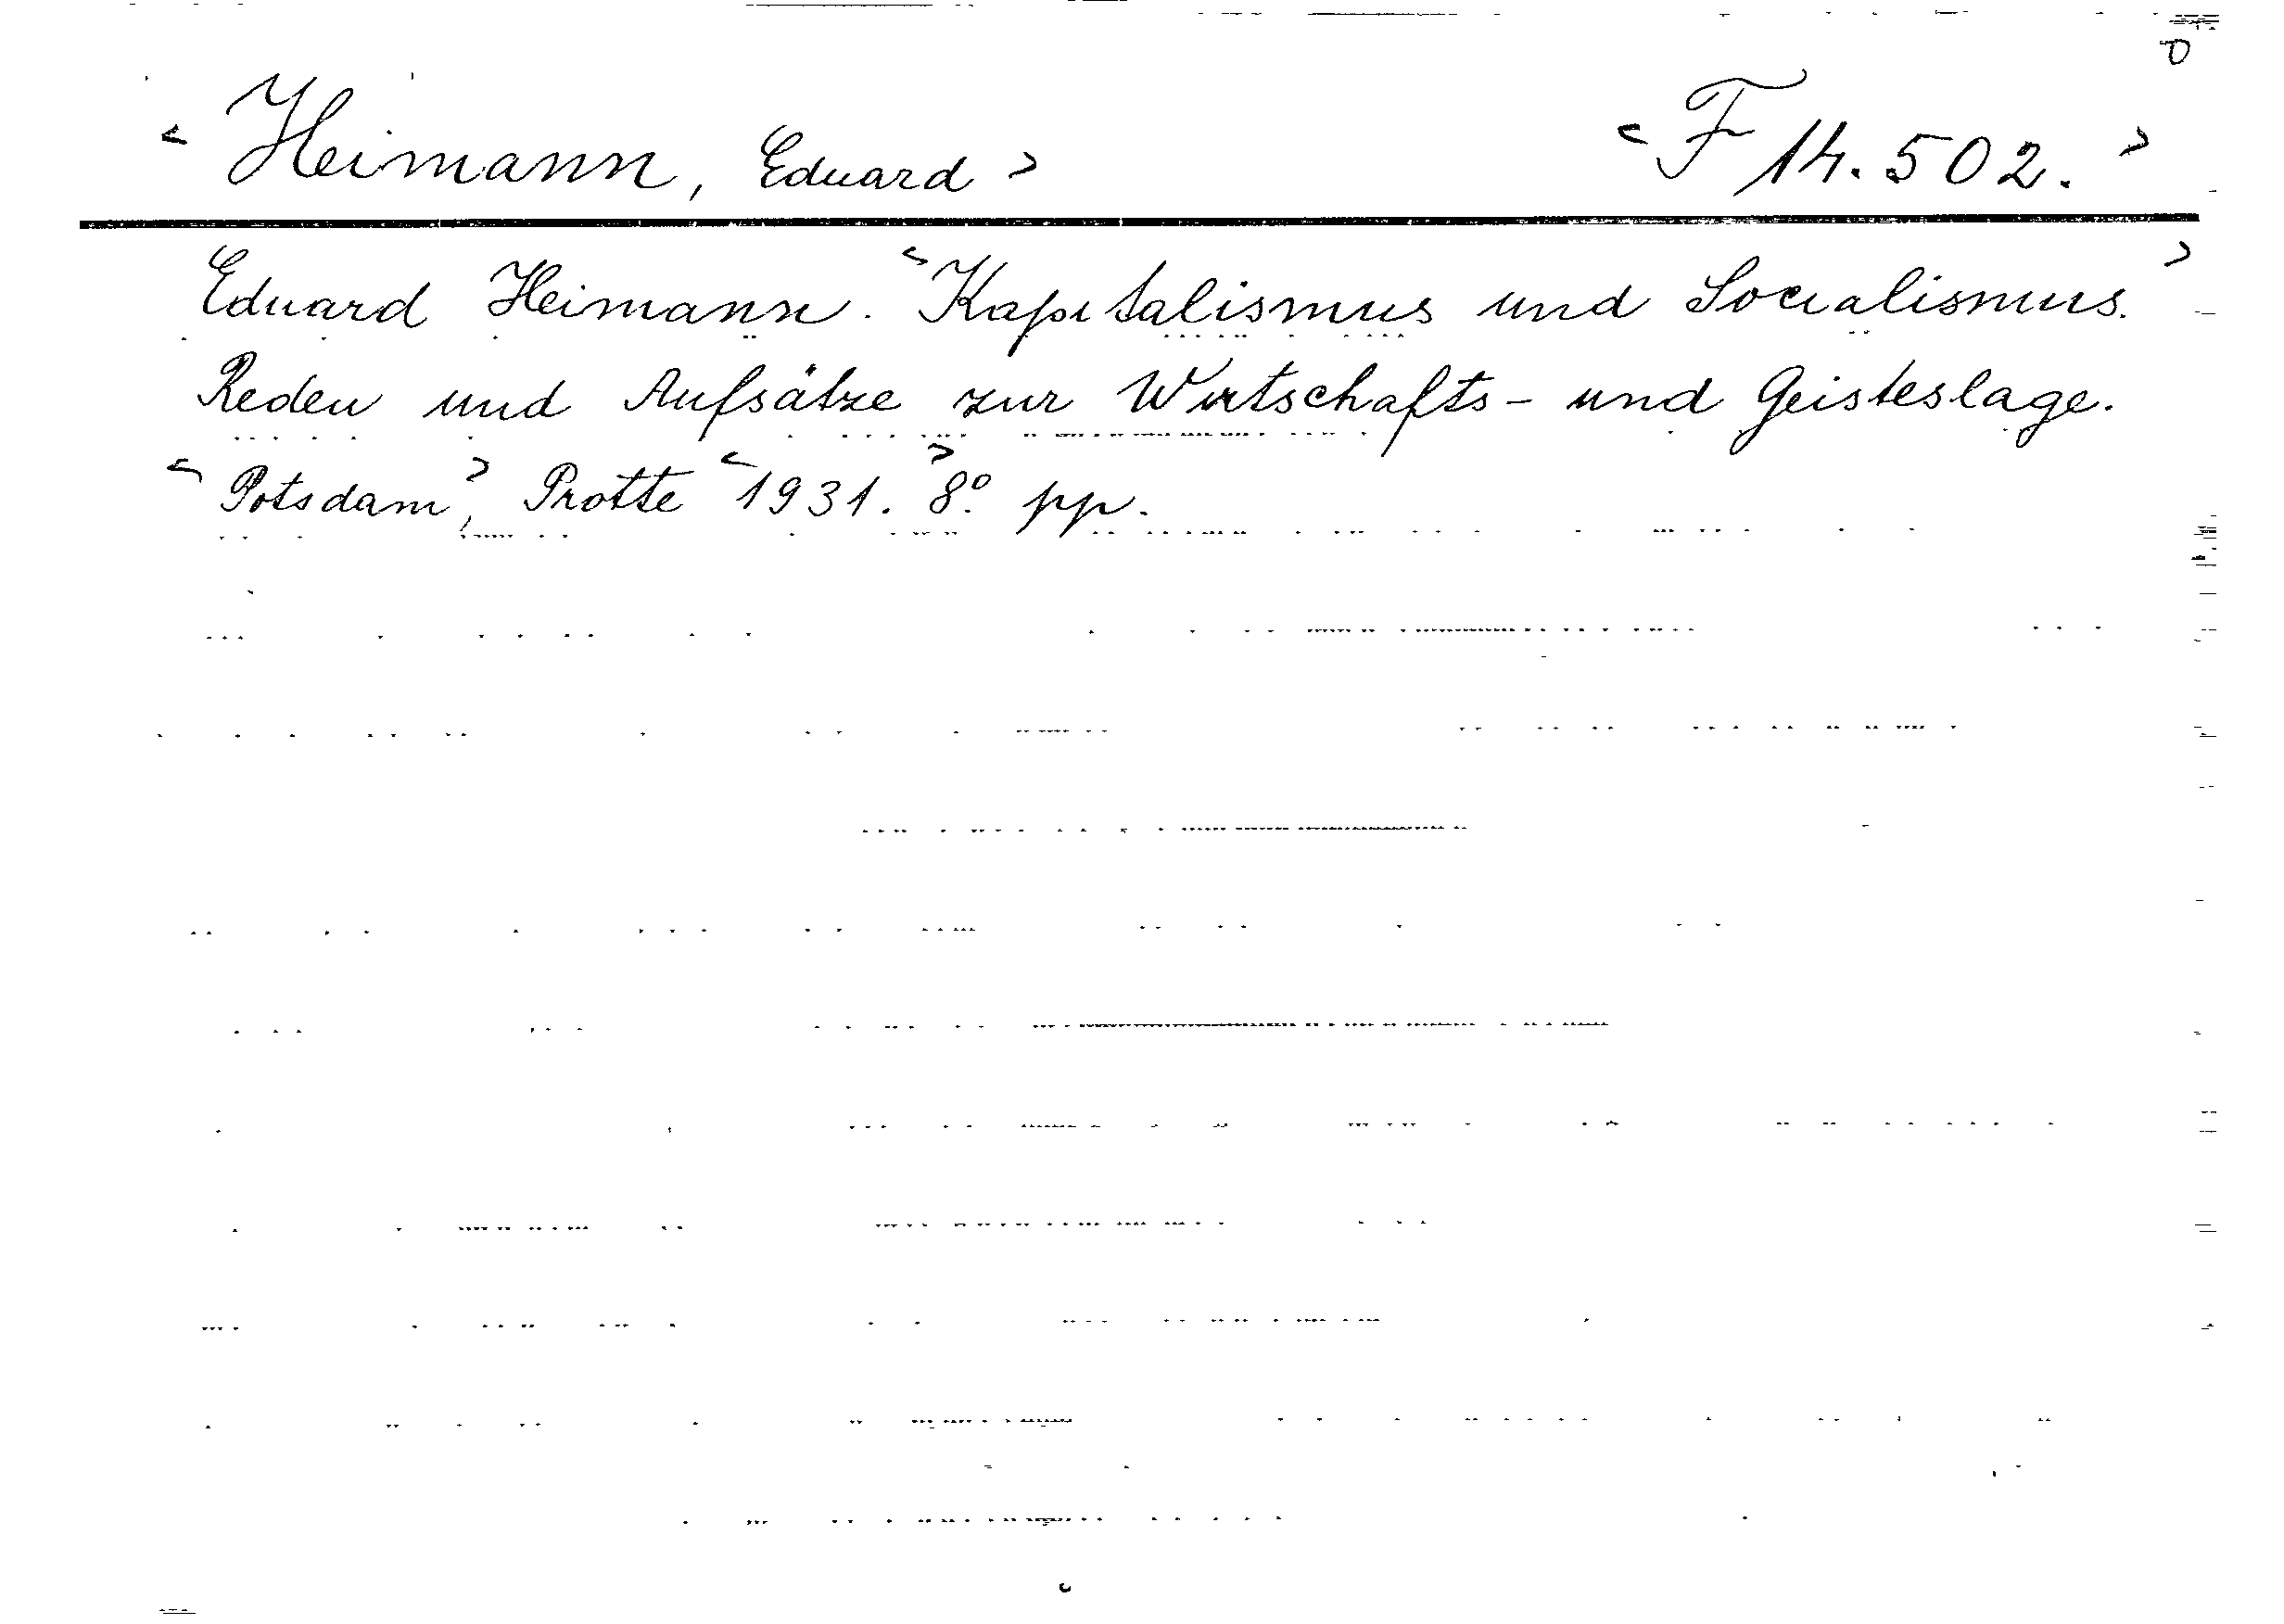 < Heimann, Eduard > < F 14.502. >
Eduard Heimann. < Kapitalismus und Socialismus. >
Reden und Aufsätze zur Wirtschafts- und Geisteslage.
< Potsdam, > Protte < 1931. > 8° pp.